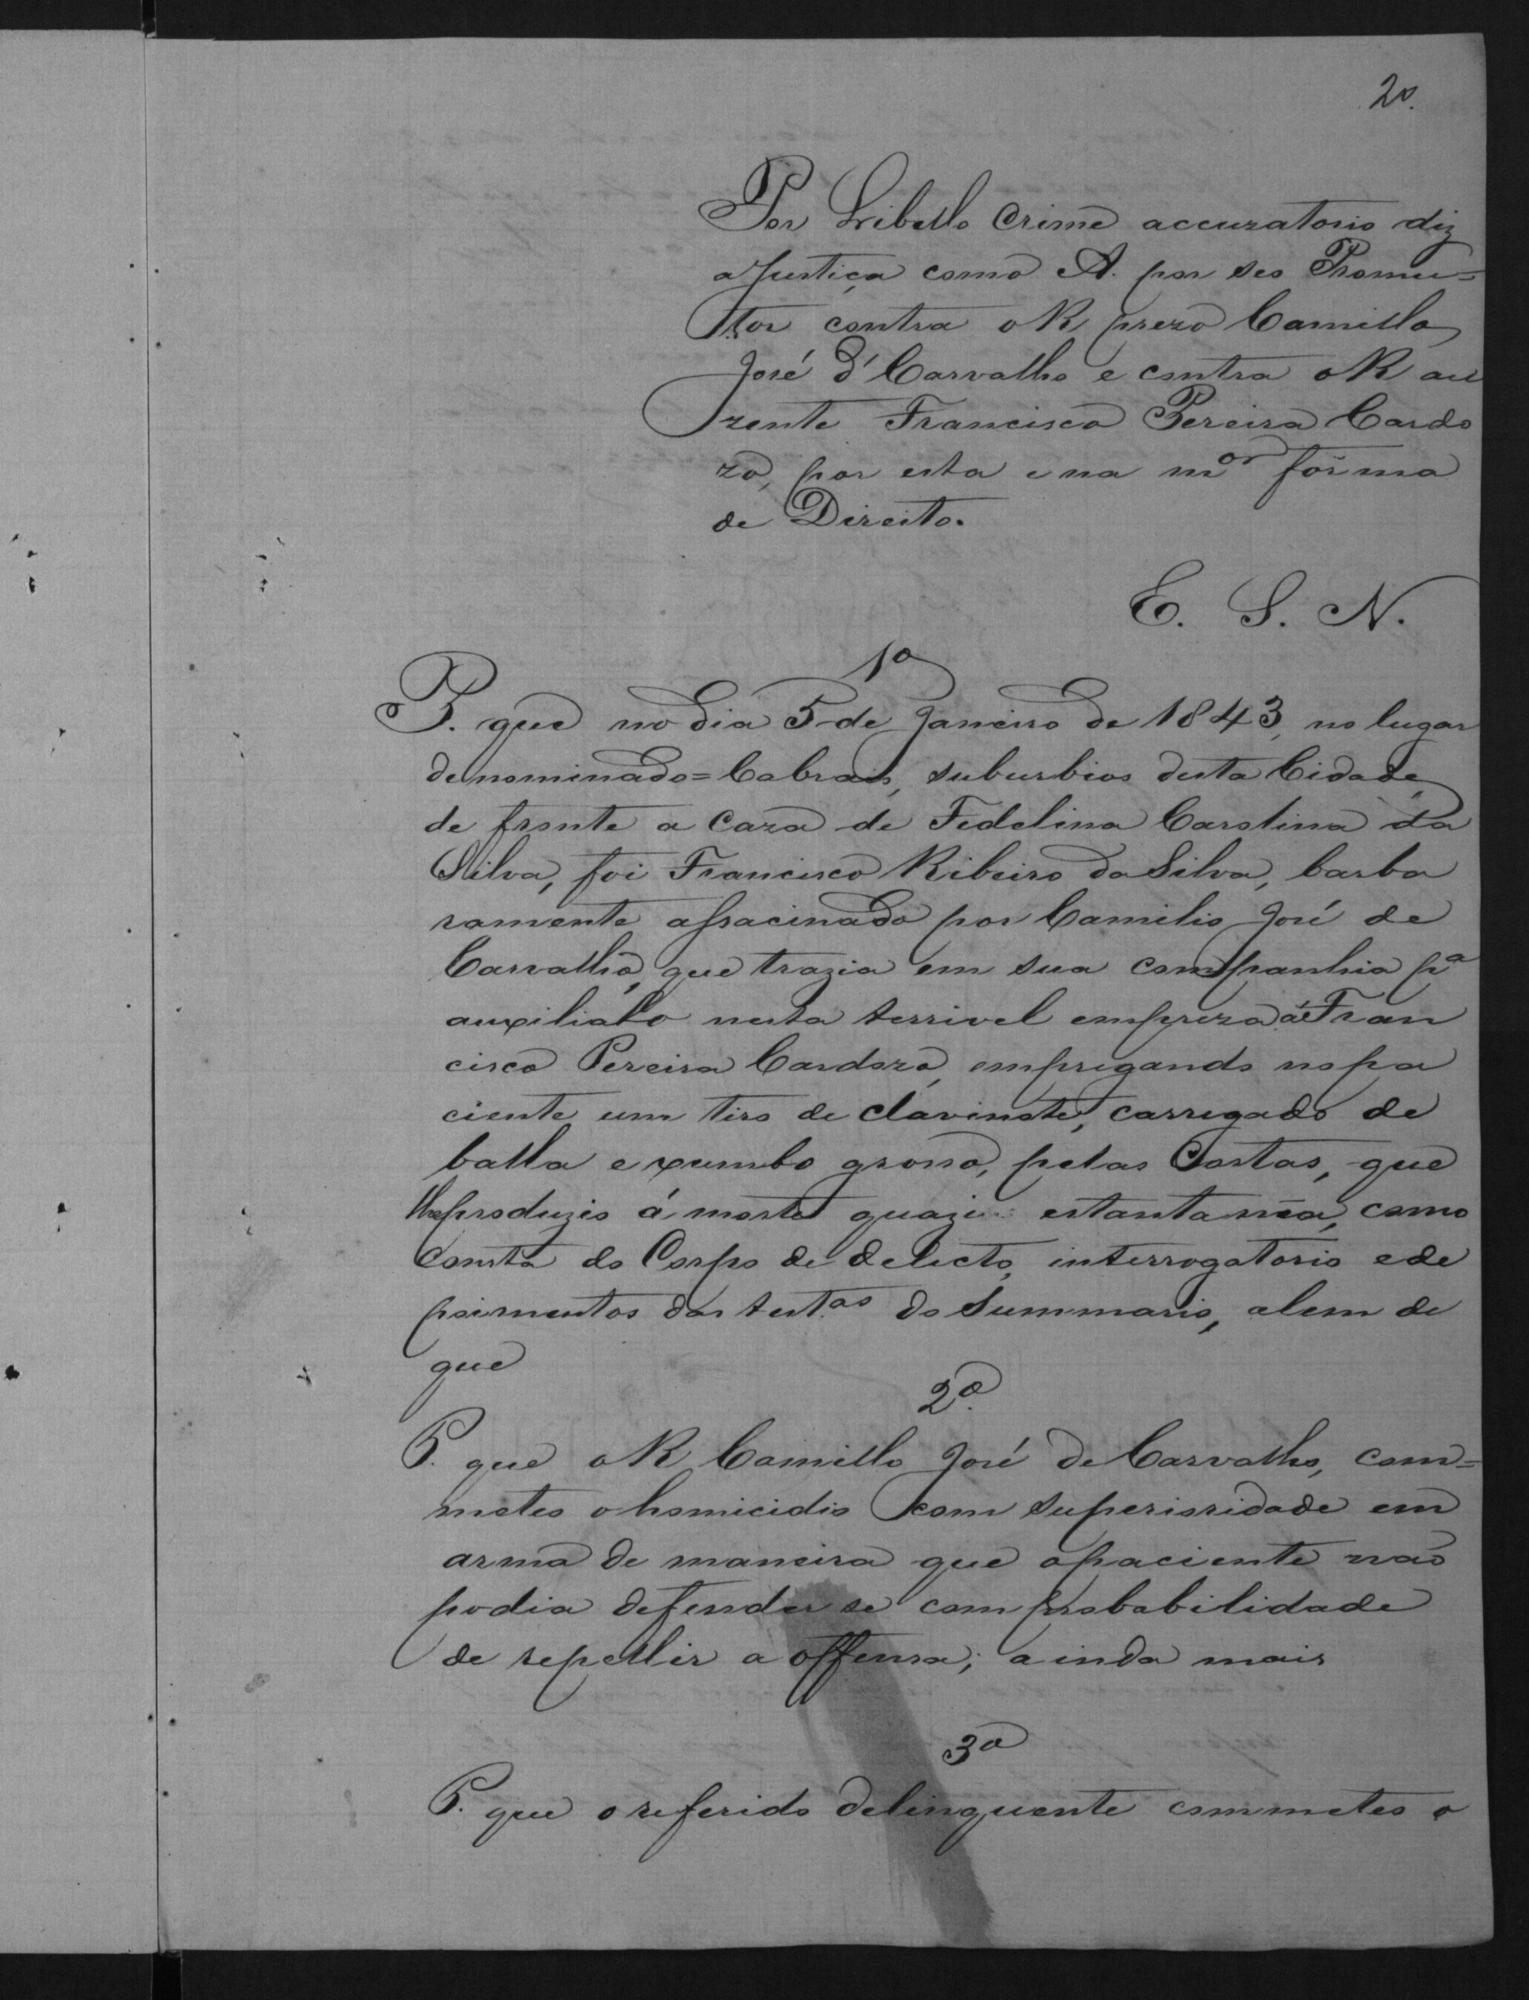 20.
Por Libello Crime accuzatorio diz
a Justiça como A. por seo Promu=
tor contra o R prezo Camillo
José d'Carvalho e contra o R au
zente Francisco Pereira Cardo
zo, por esta e na mor forma
de Direito.
E. S. N.
1º
P. que no dia 5 de Janeiro de 1843, no lugar
denominado = Cabrais, suburbios desta Cidade,
de fronte a caza de Fedelina Carolina da
Silva, foi Francisco Ribeiro da Silva, barba
ramente assacinado por Camilio José de
Carvalho, que trazia em sua companhia pª
auxilialo nesta terrivel empreza á Fran
cisco Pereira Cardozo, empregando no pa
ciente um tiro de clavinote, carregado de
balla e xumbo grosso, pelas Costas, que
lhe produzio á morte quazi estantania, como
Consta do Corpo de delicto, interrogatorio e de
poimentos das testas do Summario, alem de
que
2º
P. que o R Camillo José de Carvalho, com=
meteo o homicidio com superioridade em
arma de maneira que o paciente não
podia defender se com probabilidade
de repellir a offensa; ainda mais
3º
P. que o referido delinquente commeteo o